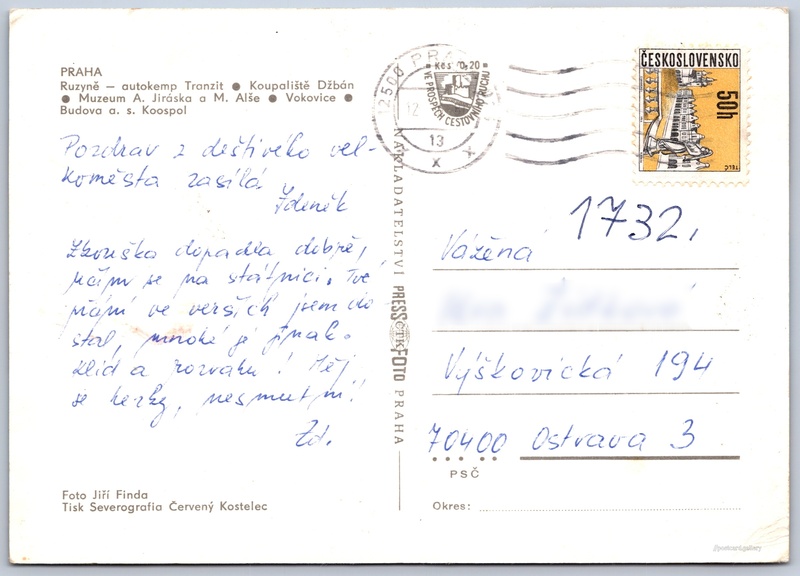 PRAHA
Ruzyně – autokemp Tranzit ● Koupaliště Džbán
● Muzeum A. Jiráska a M. Alše ● Vokovice ●
Budova a. s. Koospol
Pozdrav z deštivého vel-
koměsta zasílá
Zdeněk
Zkouška dopadla dobře,
učím se na státnici. Tvé
přání ve verších jsem do
stal, mnohé je jinak.
Klid a rozvahu! Měj
se hezky, nesmutni!
Zd.
Foto Jiří Finda
Tisk Severografia Červený Kostelec
NAKLADATELSTVÍ PRESSFOTO PRAHA
ČTK
12500 PRAHA
Kčs 0,20
VE PROSPĚCH CESTOVNÍHO RUCHU
12
13
x x
ČESKOSLOVENSKO
50h
TELČ
1732,
Vážená
Výškovická 194
70400 Ostrava 3
PSČ
Okres:
postcard.gallery